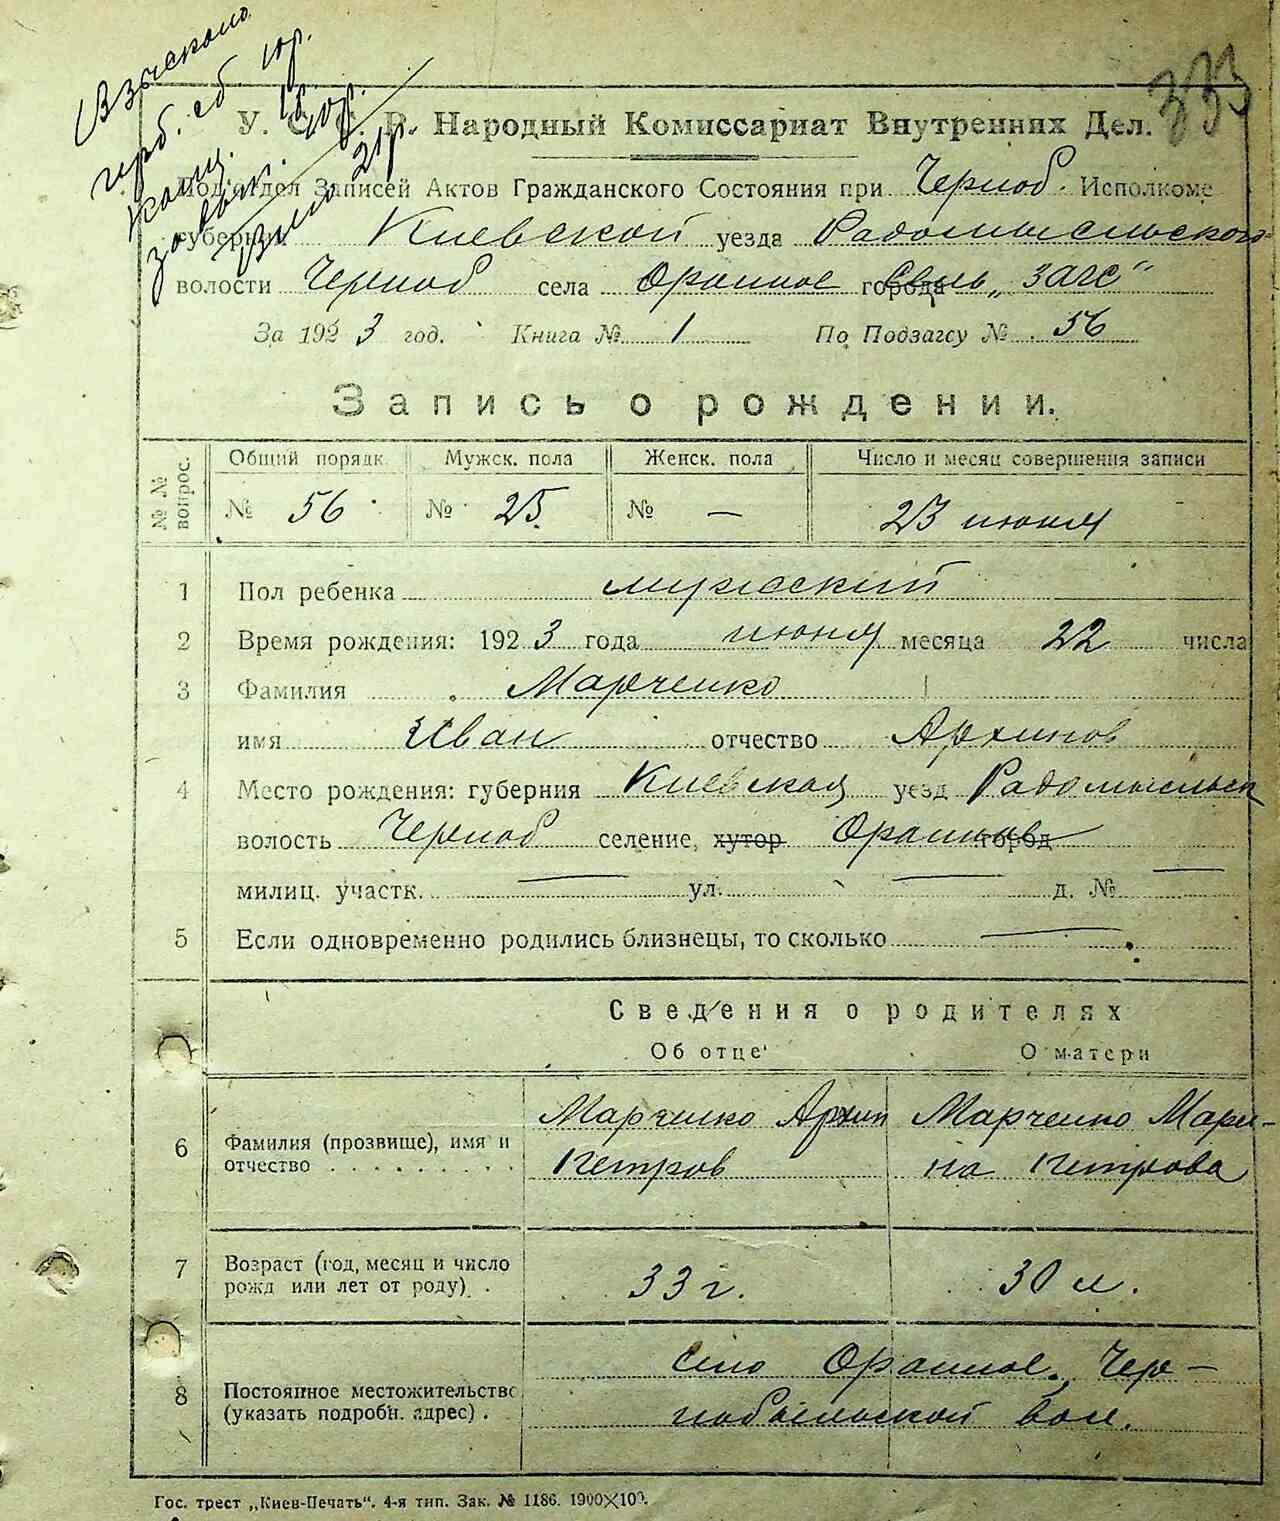 Взыскано
герб. сб 10р.
канц. 1р.
за бл. 10р.
Всего 21р.
333
У. С. С. Р. Народный Комиссариат Внутренних Дел.
Подотдел Записей Актов Гражданского Состояния при Черноб. Исполкоме
губернии Киевской уезда Радомысльского
волости Черноб села Оранное города Сель „ЗАГС“
За 1923 год. Книга № 1 По Подзагсу № 56
Запись о рождении.
№ № вопрос.
Общий порядк. Мужск. пола Женск. пола Число и месяц совершения записи
№ 56 № 25 № — 23 июня
1 Пол ребенка мужеский
2 Время рождения: 1923 года июня месяца 22 числа
3 Фамилия Марченко
имя Иван отчество Архипов
4 Место рождения: губерния Киевская уезд Радомысльск
волость Черноб селение, хутор Оранное город
милиц. участк. — ул. — д. № —
5 Если одновременно родились близнецы, то сколько —
Сведения о родителях
Об отце О матери
6 Фамилия (прозвище), имя и отчество
Марченко Архип Петров
Марченко Марина Петрова
7 Возраст (год, месяц и число рожд или лет от роду).
33 г. 30 л.
8 Постоянное местожительство (указать подробн. адрес).
село Оранное, Чер-
нобыльской вол.
Гос. трест „Киев-Печать“. 4-я тип. Зак. № 1186. 1900×100.